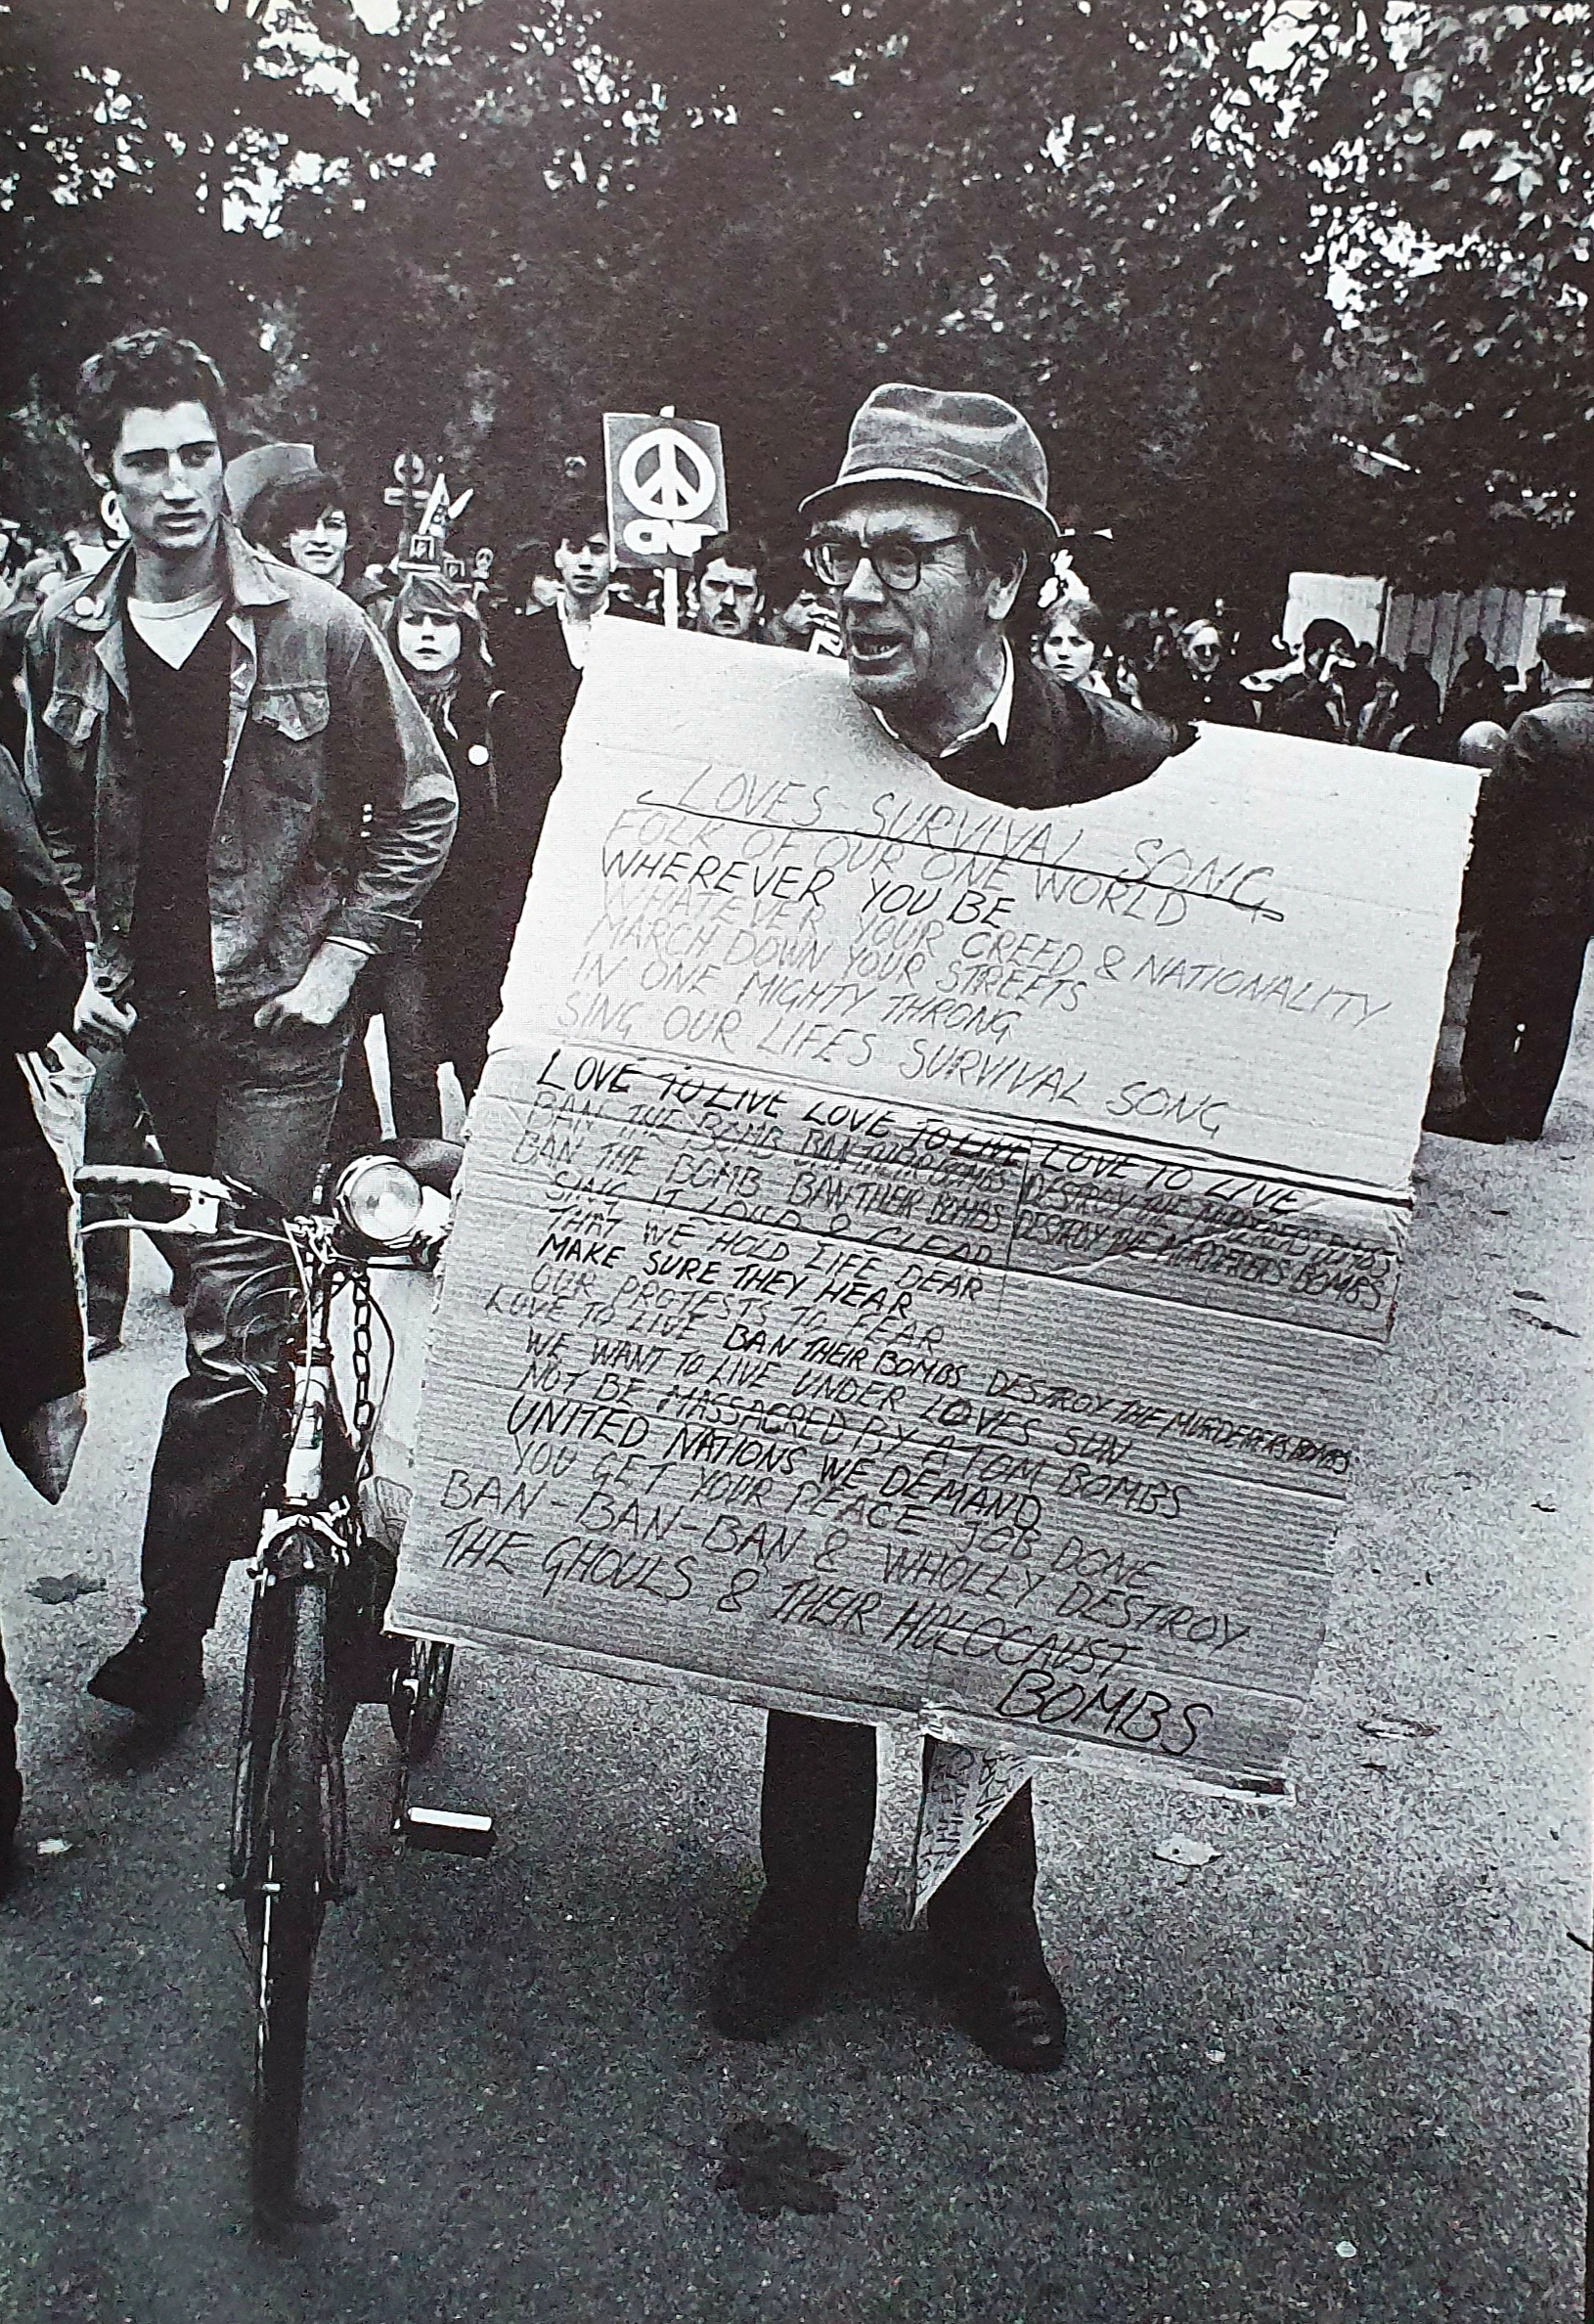 CND
LOVES SURVIVAL SONG
FOLK OF OUR ONE WORLD
WHEREVER YOU BE
WHATEVER YOUR CREED & NATIONALITY
MARCH DOWN YOUR STREETS
IN ONE MIGHTY THRONG
SING OUR LIFES SURVIVAL SONG
LOVE TO LIVE LOVE TO LIVE LOVE TO LIVE
BAN THE BOMB BAN THEIR BOMBS DESTROY THE MURDERERS BOMBS
BAN THE BOMB BAN THEIR BOMBS DESTROY THE MURDERERS BOMBS
SING IT LOUD & CLEAR
THAT WE HOLD LIFE DEAR
MAKE SURE THEY HEAR
OUR PROTESTS TO FEAR
LOVE TO LIVE BAN THEIR BOMBS DESTROY THE MURDERERS BOMBS
WE WANT TO LIVE UNDER LOVES SUN
NOT BE MASSACRED BY ATOM BOMBS
UNITED NATIONS WE DEMAND
YOU GET YOUR PEACE JOB DONE
BAN-BAN-BAN & WHOLLY DESTROY
THE GHOULS & THEIR HOLOCAUST
BOMBS